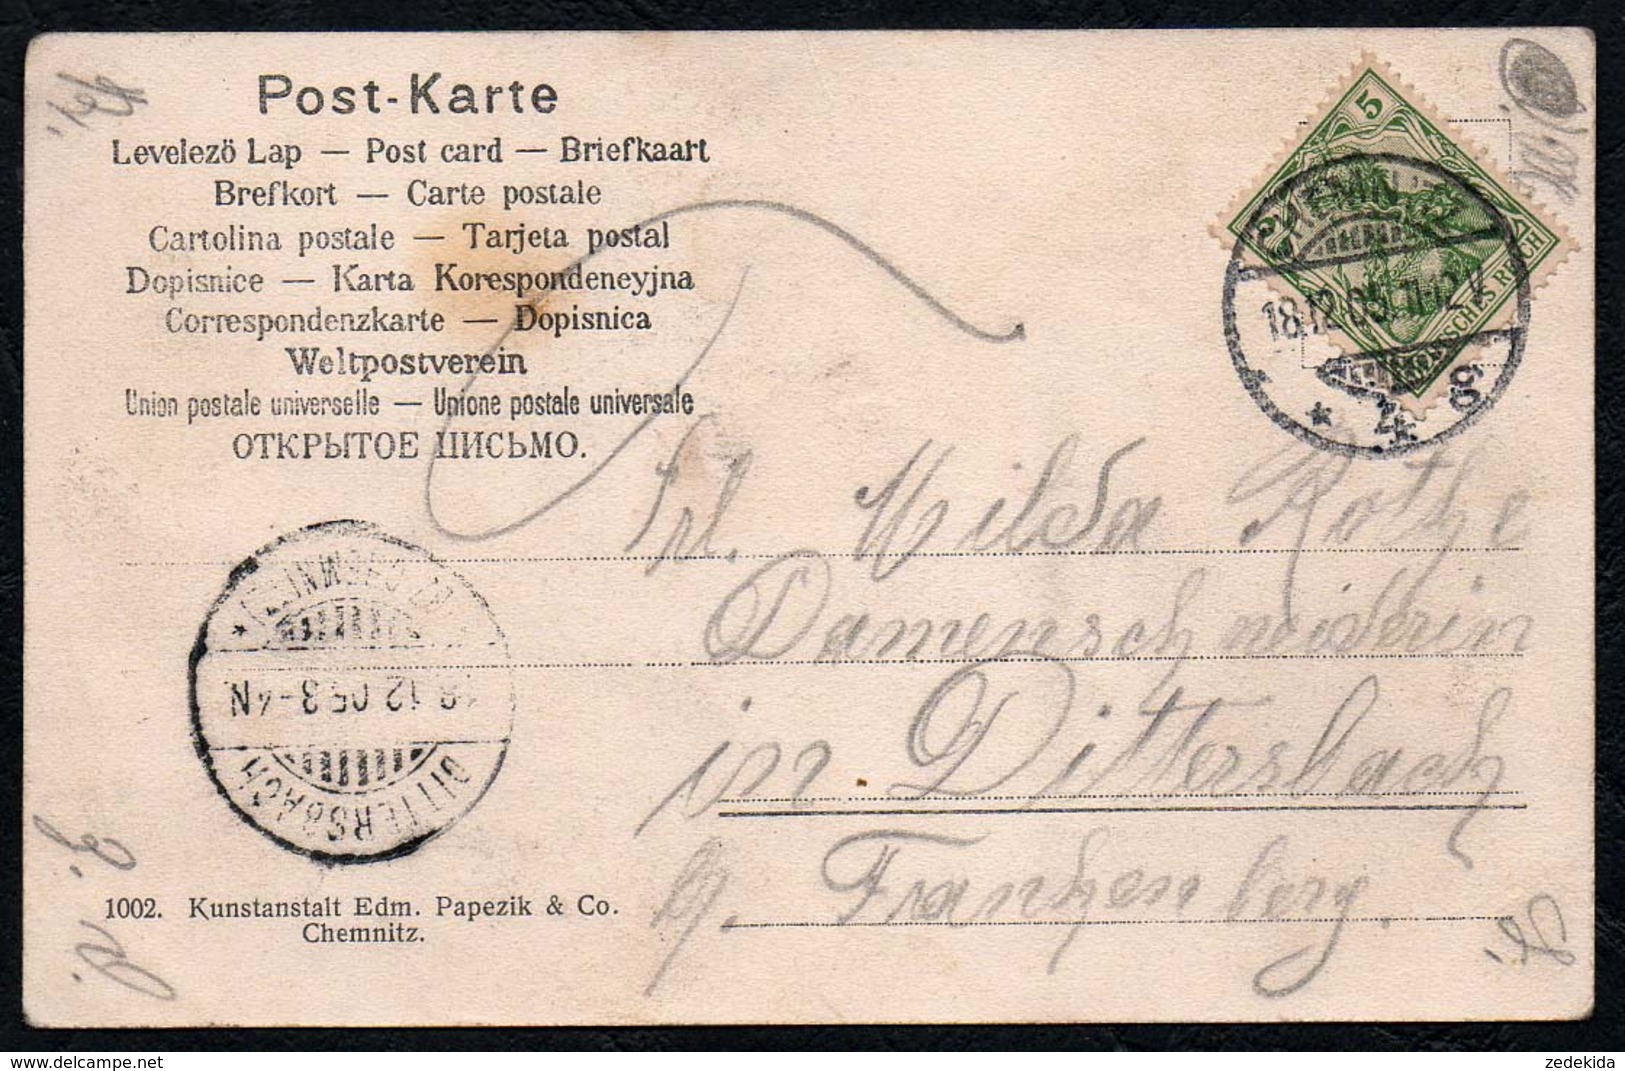 Post-Karte
Levelezö Lap — Post card — Briefkaart
Brefkort — Carte postale
Cartolina postale — Tarjeta postal
Dopisnice — Karta Korespondeneyjna
Correspondenzkarte — Dopisnica
Weltpostverein
Union postale universelle — Unione postale universale
ОТКРЫТОЕ ПИСЬМО.
5
DEUTSCHES REICH
CHEMNITZ
18.12.05. 11-12 V
* 4 * g
Frl. Milda Rothe
Damenschneiderin
in Dittersbach
b. Frankenberg.
(BZ. CHEMNITZ)
18 12 05 3-4N
DITTERSBACH
1002. Kunstanstalt Edm. Papezik & Co.
Chemnitz.
zedekida